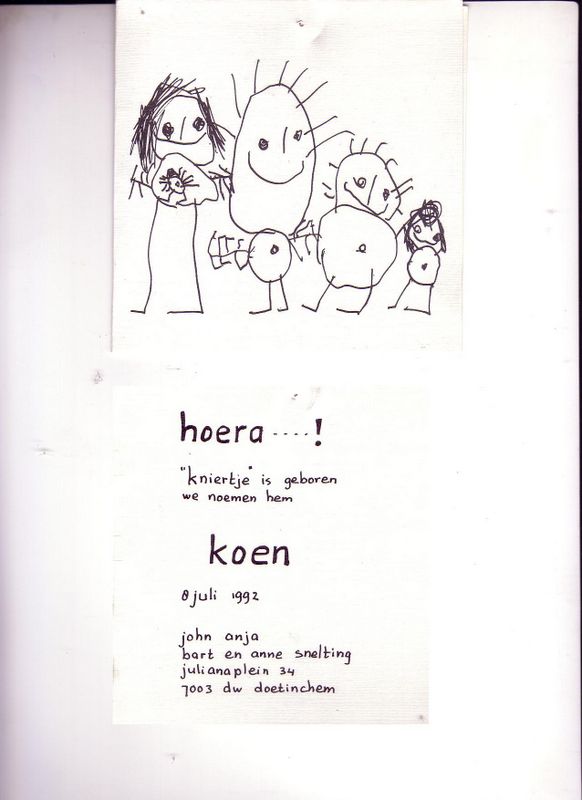 hoera ----!
"kniertje" is geboren
we noemen hem
koen
8 juli 1992
john anja
bart en anne snelting
julianaplein 34
7003 dw doetinchem